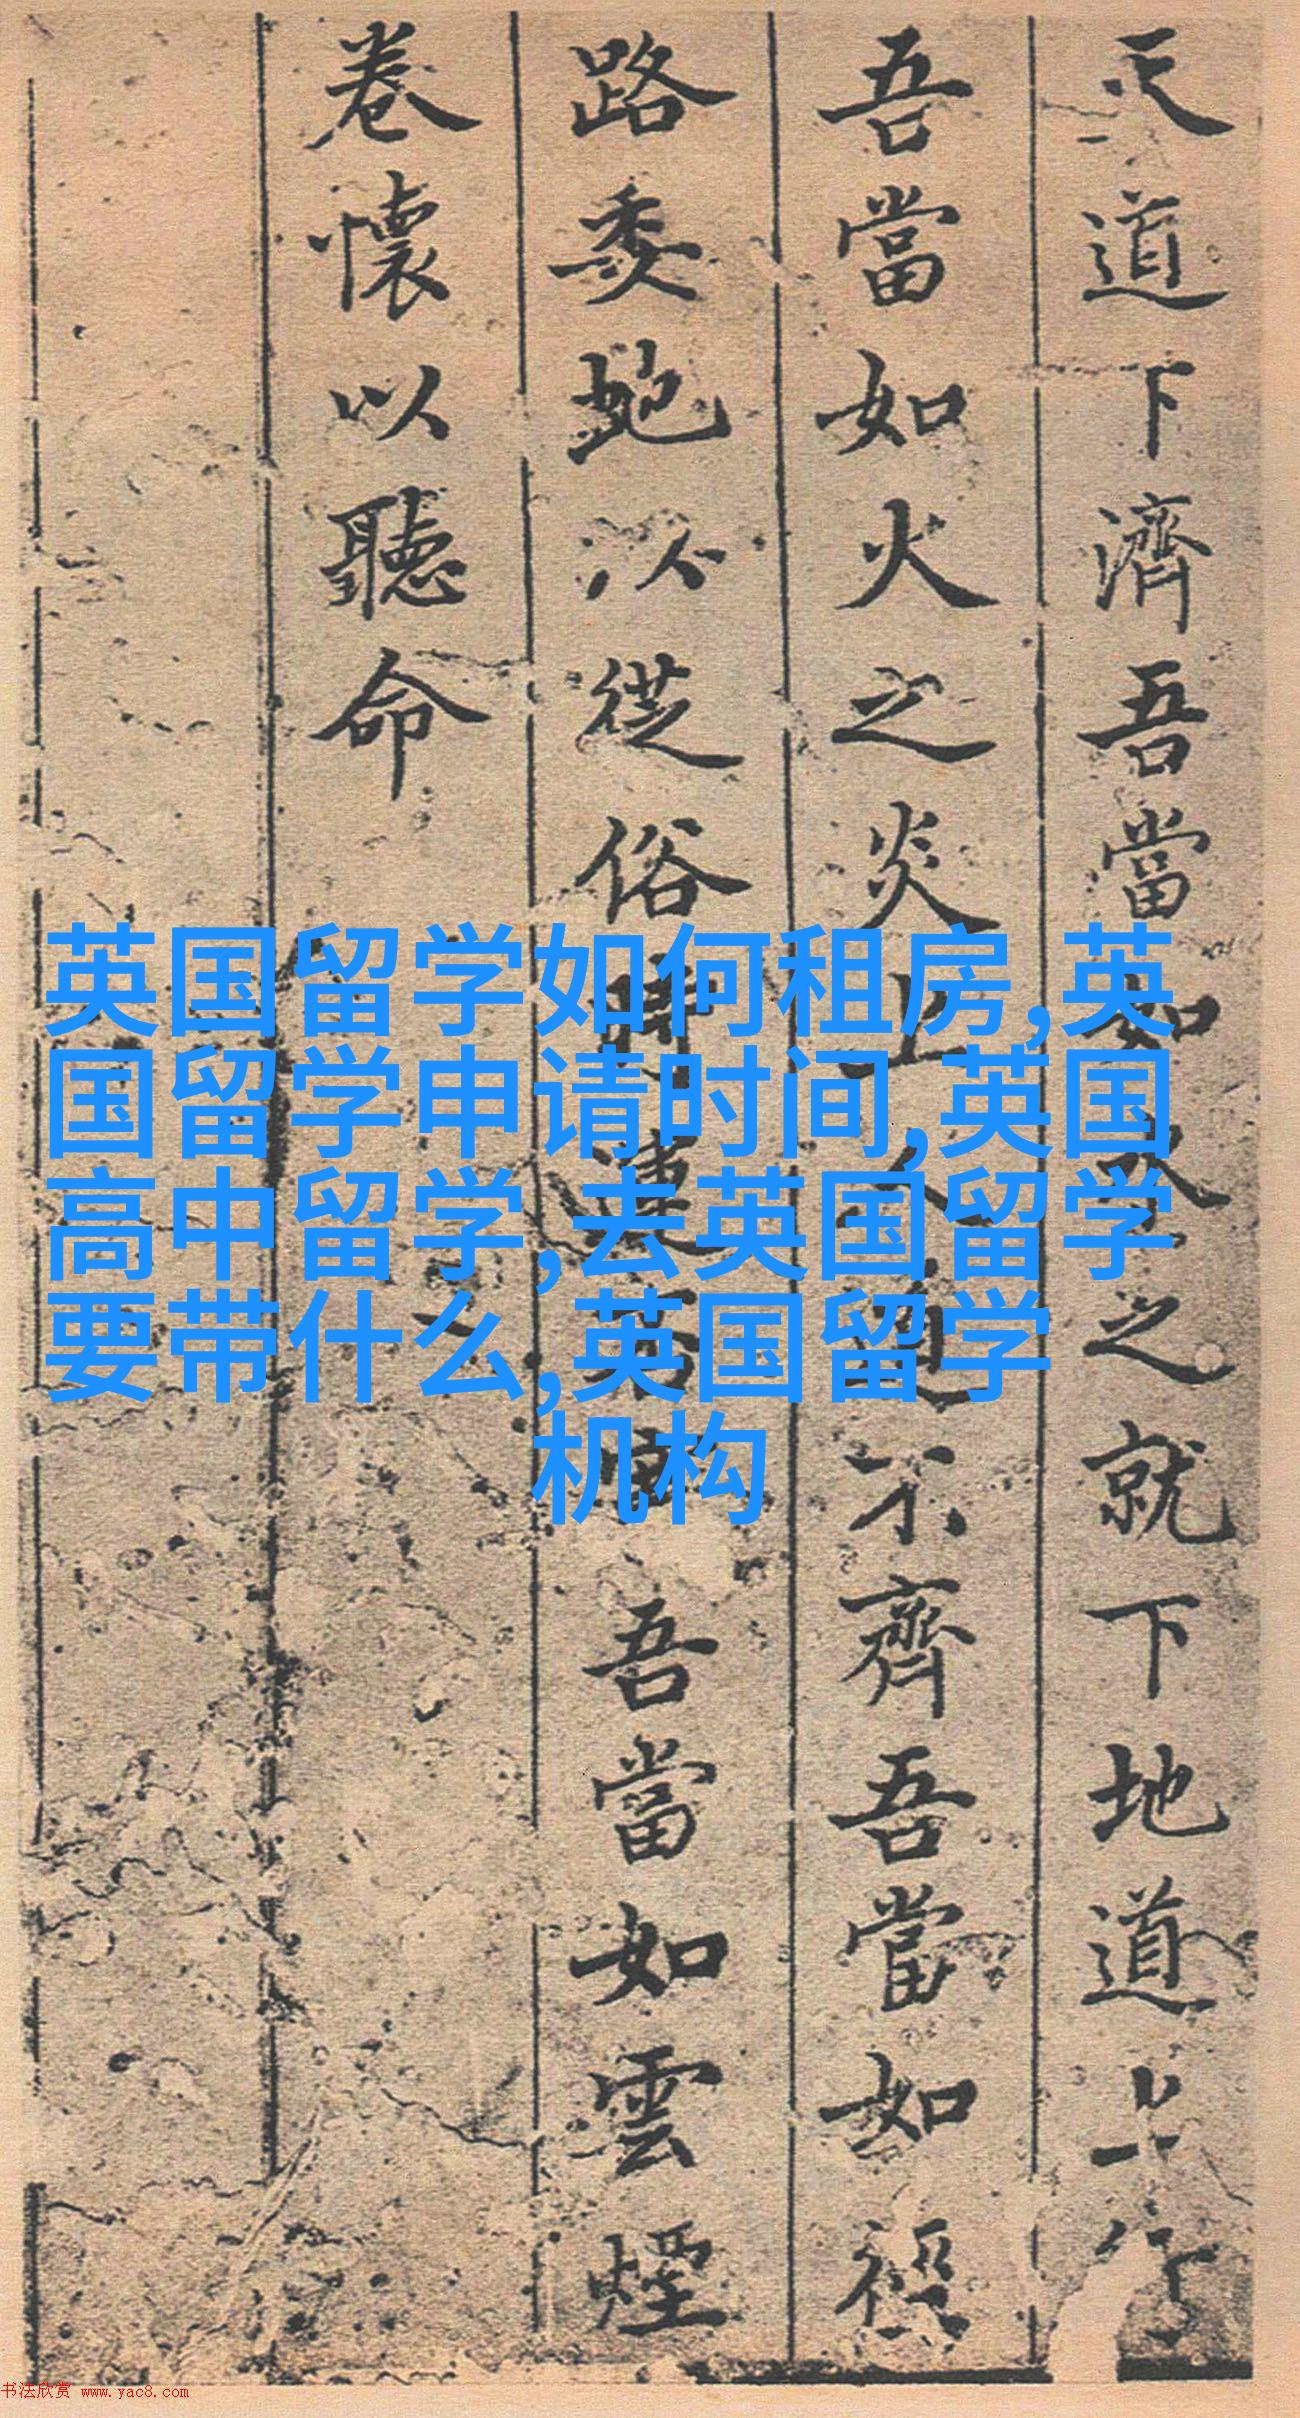 天道下濟吾當如水之就下地道上行
吾當如火之炎上人道不齊吾當如徑
路委蛇以從俗時吾當如雲煙
卷懷以聽命
英国留学如何租房,英
国留学申请时间,英国
高中留学,去英国留学
要带什么,英国留学
机构
书法欣赏 www.yac8.com